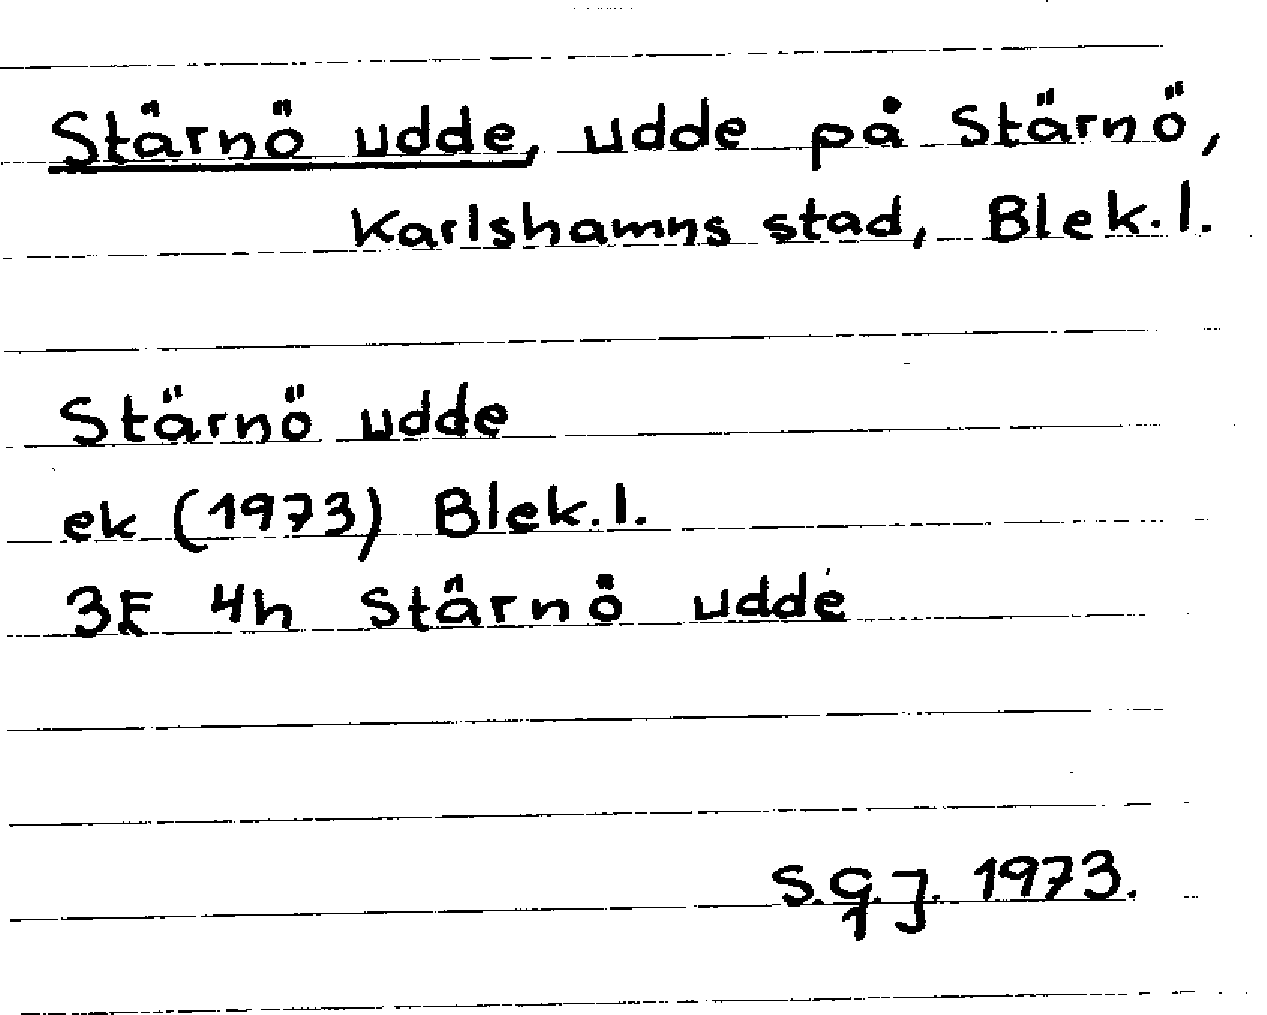 Stärnö udde, udde på Stärnö,
Karlshamns stad, Blek.l.
Stärnö udde
ek (1973) Blek.l.
3F 4h Stärnö udde
S.G.J. 1973.